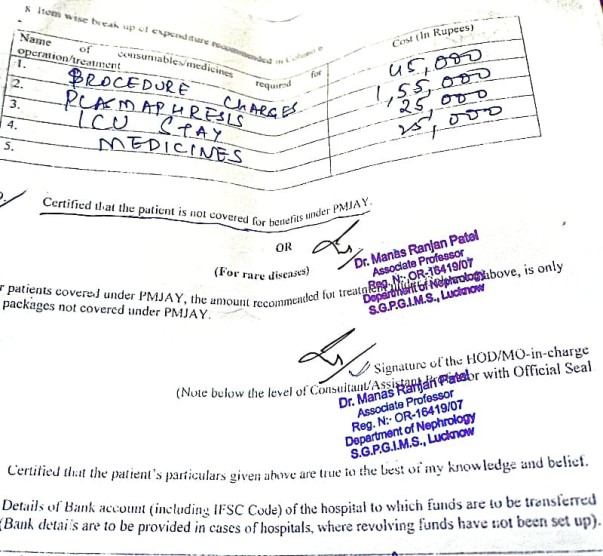 8 Item wise break up of expenditure recommended in Column
Name of consumables/medicines required for operation/treatment
Cost (In Rupees)
1. PROCEDURE CHARGES 45,000
2. PLASMAPHRESIS 1,55,000
3. ICU STAY 25,000
4. MEDICINES 25,000
5.
Certified that the patient is not covered for benefits under PMJAY.
OR
(For rare diseases)
Dr. Manas Ranjan Patel
Associate Professor
Reg. N:- OR-16419/07
Department of Nephrology
S.G.P.G.I.M.S., Lucknow
r patients covered under PMJAY, the amount recommended for treatment above, is only
packages not covered under PMJAY.
Signature of the HOD/MO-in-charge
(Note below the level of Consultant/Assistant Professor with Official Seal
Dr. Manas Ranjan Patel
Associate Professor
Reg. N:- OR-16419/07
Department of Nephrology
S.G.P.G.I.M.S., Lucknow
Certified that the patient's particulars given above are true to the best of my knowledge and belief.
Details of Bank account (including IFSC Code) of the hospital to which funds are to be transferred
(Bank details are to be provided in cases of hospitals, where revolving funds have not been set up).